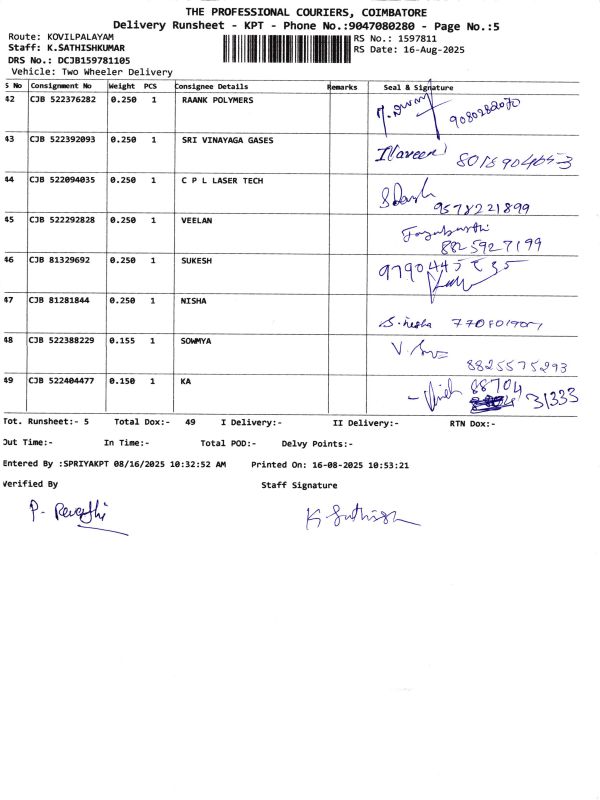 THE PROFESSIONAL COURIERS, COIMBATORE
Delivery Runsheet - KPT - Phone No.:9047080280 - Page No.:5
Route: KOVILPALAYAM RS No.: 1597811
Staff: K.SATHISHKUMAR RS Date: 16-Aug-2025
DRS No.: DCJB159781105
Vehicle: Two Wheeler Delivery
S No Consignment No Weight PCS Consignee Details Remarks Seal & Signature
42 CJB 522376282 0.250 1 RAANK POLYMERS 9080282070
43 CJB 522392093 0.250 1 SRI VINAYAGA GASES
44 CJB 522094035 0.250 1 C P L LASER TECH 9578221899
45 CJB 522292828 0.250 1 VEELAN 8825927199
46 CJB 81329692 0.250 1 SUKESH
47 CJB 81281844 0.250 1 NISHA
48 CJB 522388229 0.155 1 SOWMYA 8825575293
49 CJB 522404477 0.150 1 KA 88704 31333
Tot. Runsheet:- 5 Total Dox:- 49 I Delivery:- II Delivery:- RTN Dox:-
Out Time:- In Time:- Total POD:- Delvy Points:-
Entered By :SPRIYAKPT 08/16/2025 10:32:52 AM Printed On: 16-08-2025 10:53:21
Verified By Staff Signature
P. Revathi